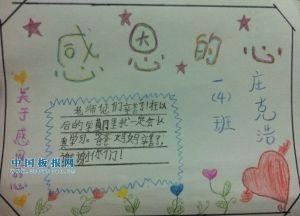 感恩的心
庄克浩
一(4)班
老师您们辛苦了!在以
后的学期里我一定会认
真学习。爸爸妈妈辛苦了,
谢谢你们!
关于感恩心
中国板报网